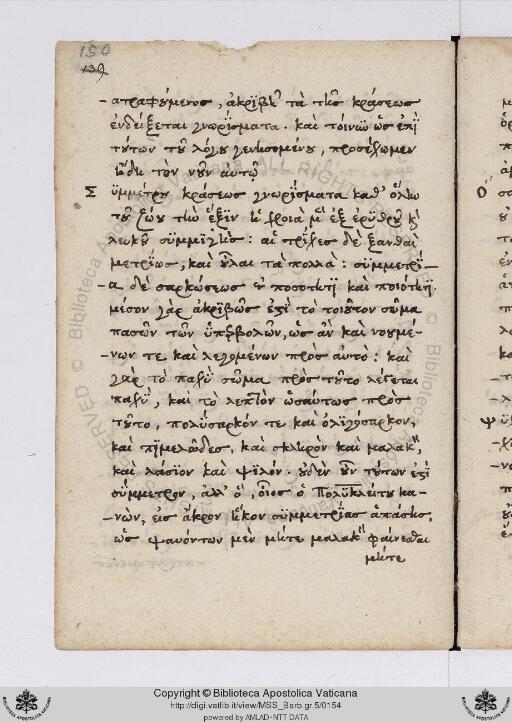 150
139
-ατραφόμενος, ἀκριβῆ τὰ τῆς κράσεως
ἐνδείξεται γνωρίσματα. καὶ τοίνυν ὡς ἐπὶ
τούτων τοῦ λόγου γενησομένου, προσέχωμεν
ἤδη τὸν νοῦν αὐτῷ
Σ ὑμμέτρου κράσεως γνωρίσματα καθ' ὅλου
τοῦ ζώου τὴν ἕξιν ἡ χροιὰ μὲν ἐξ ἐρυθροῦ καὶ
λευκοῦ σύμμικτος: αἱ τρίχες δὲ ξανθαὶ
μετρίως, καὶ οὖλαι τὰ πολλὰ: συμμετρί-
-α δὲ σαρκώσεως ἐν ποσότητι καὶ ποιότητι.
μέσον γὰρ ἀκριβῶς ἐστὶ τὸ τοιοῦτον σῶμα
πασῶν τῶν ὑπερβολῶν, ὡς ἂν καὶ νοουμέ-
-νων τε καὶ λεγομένων πρὸς αὐτὸ: καὶ
γὰρ τὸ παχὺ σῶμα πρὸς τοῦτο λέγεται
παχὺ, καὶ τὸ λεπτὸν ὡσαύτως πρὸς
τοῦτο, πολύσαρκόν τε καὶ ὀλιγόσαρκον,
καὶ πιμελῶδες, καὶ σκληρὸν καὶ μαλακὸν,
καὶ λάσιον καὶ ψιλόν. οὐδὲν οὖν τούτων ἐστὶ
σύμμετρον, ἀλλ' ὁ, οἷος ὁ Πολυκλείτου κα-
-νὼν, εἰς ἄκρον ἧκον συμμετρίας ἁπάσης,
ὡς ψαυόντων μὲν μήτε μαλακὸν φαίνεσθαι
μήτε
Copyright © Biblioteca Apostolica Vaticana
http://digi.vatlib.it/view/MSS_Barb.gr.5/0154
powered by AMLAD-NTT DATA